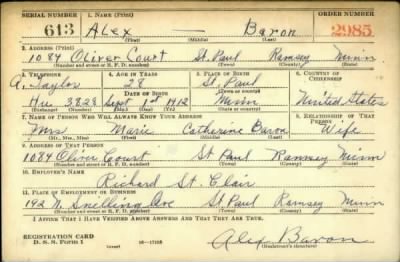 SERIAL NUMBER 1. NAME (Print) ORDER NUMBER
613 Alex — Baron 2985
(First) (Middle) (Last)
2. ADDRESS (Print)
1084 Oliver Court St. Paul Ramsey Minn
(Number and street or R. F. D. number) (Town) (County) (State)
3. TELEPHONE 4. AGE IN YEARS 5. PLACE OF BIRTH 6. COUNTRY OF CITIZENSHIP
A. Taylor 28 St. Paul
DATE OF BIRTH (Town or county)
Hu. 3828 Sept 1st 1912 Minn United States
(Exchange) (Number) (Mo.) (Day) (Yr.) (State or country)
7. NAME OF PERSON WHO WILL ALWAYS KNOW YOUR ADDRESS 8. RELATIONSHIP OF THAT PERSON
Mrs Marie Catherine Baron Wife
(Mr., Mrs., Miss) (First) (Middle) (Last)
9. ADDRESS OF THAT PERSON
1084 Oliver Court St Paul Ramsey Minn
(Number and street or R. F. D. number) (Town) (County) (State)
10. EMPLOYER'S NAME
Richard St. Clair
11. PLACE OF EMPLOYMENT OR BUSINESS
192 N. Snelling Ave St Paul Ramsey Minn
(Number and street or R. F. D. number) (Town) (County) (State)
I AFFIRM THAT I HAVE VERIFIED ABOVE ANSWERS AND THAT THEY ARE TRUE.
REGISTRATION CARD
D. S. S. Form 1 Alex Baron
(Registrant's signature)